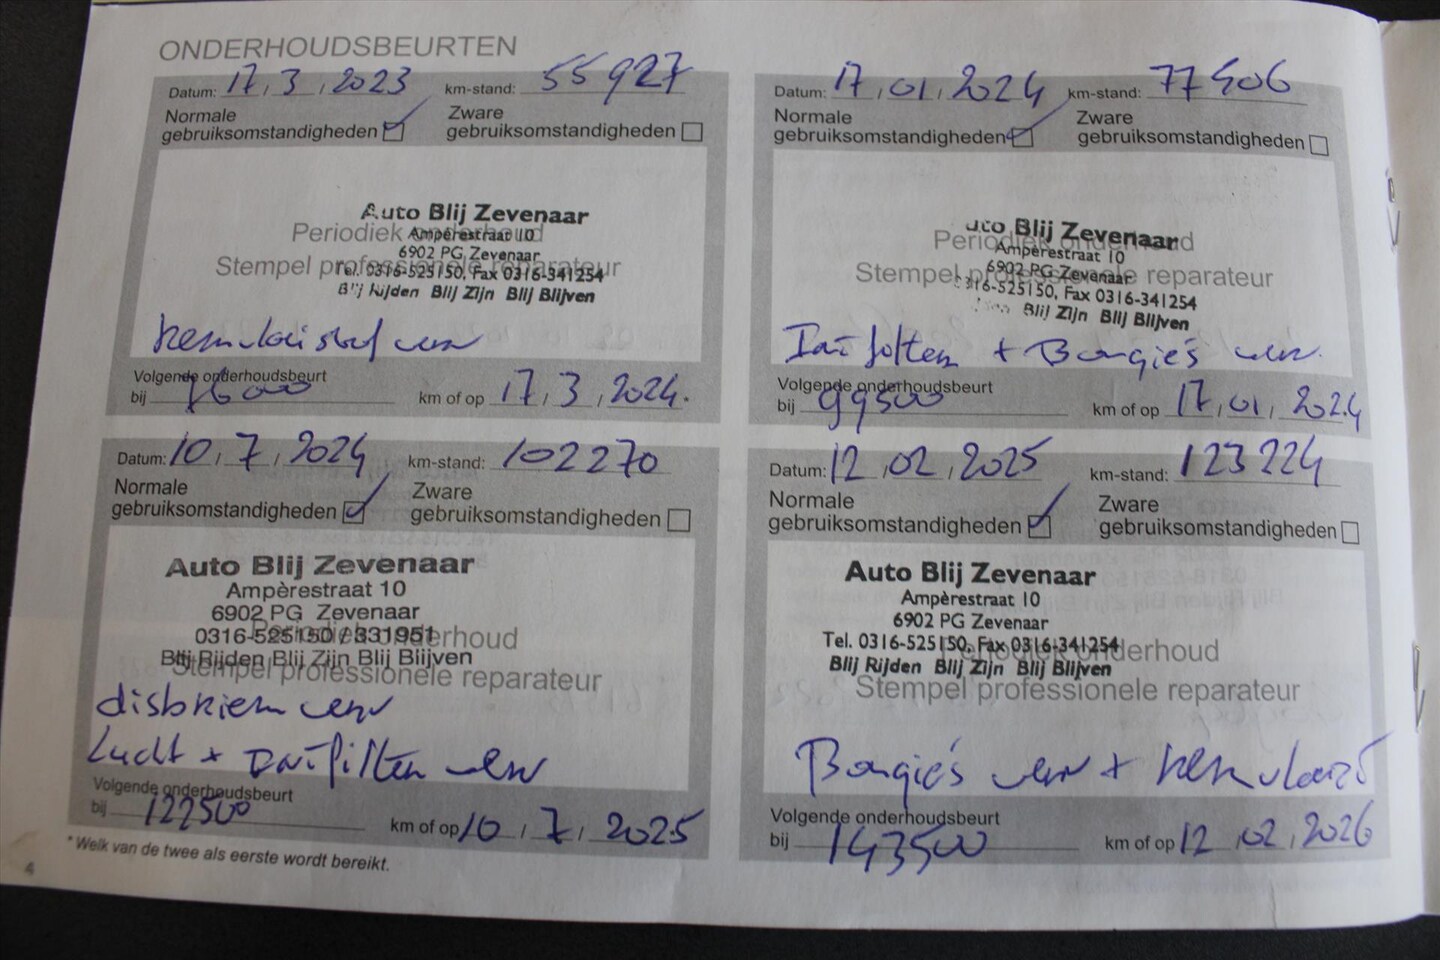 ONDERHOUDSBEURTEN
Datum: 17, 3, 2023 km-stand: 55927
Normale gebruiksomstandigheden Zware gebruiksomstandigheden
Auto Blij Zevenaar
Periodiek onderhoud
Ampèrestraat 10
6902 PG Zevenaar
Stempel professionele reparateur
Tel. 0316-525150, Fax 0316-341254
Blij Rijden Blij Zijn Blij Blijven
Remvloeistof verv
Volgende onderhoudsbeurt
bij 76000 km of op 17, 3, 2024.
Datum: 17, 01, 2024 km-stand: 77406
Normale gebruiksomstandigheden Zware gebruiksomstandigheden
uto Blij Zevenaar
Periodiek onderhoud
Ampèrestraat 10
6902 PG Zevenaar
Stempel professionele reparateur
316-525150, Fax 0316-341254
Blij Zijn Blij Blijven
+ Bougie's verv.
Volgende onderhoudsbeurt
bij 99500 km of op 17, 01, 2024
Datum: 10, 7, 2024 km-stand: 102270
Normale gebruiksomstandigheden Zware gebruiksomstandigheden
Auto Blij Zevenaar
Ampèrestraat 10
6902 PG Zevenaar
0316-525150 / 331951
Periodiek onderhoud
Blij Rijden Blij Zijn Blij Blijven
Stempel professionele reparateur
distriem verv
Lucht + verv
Volgende onderhoudsbeurt
bij 122500 km of op 10, 7, 2025
Datum: 12, 02, 2025 km-stand: 123224
Normale gebruiksomstandigheden Zware gebruiksomstandigheden
Auto Blij Zevenaar
Ampèrestraat 10
6902 PG Zevenaar
Tel. 0316-525150, Fax 0316-341254
Periodiek onderhoud
Blij Rijden Blij Zijn Blij Blijven
Stempel professionele reparateur
Bougie's verv +
Volgende onderhoudsbeurt
bij 143500 km of op 12, 02, 2026
* Welk van de twee als eerste wordt bereikt.
4